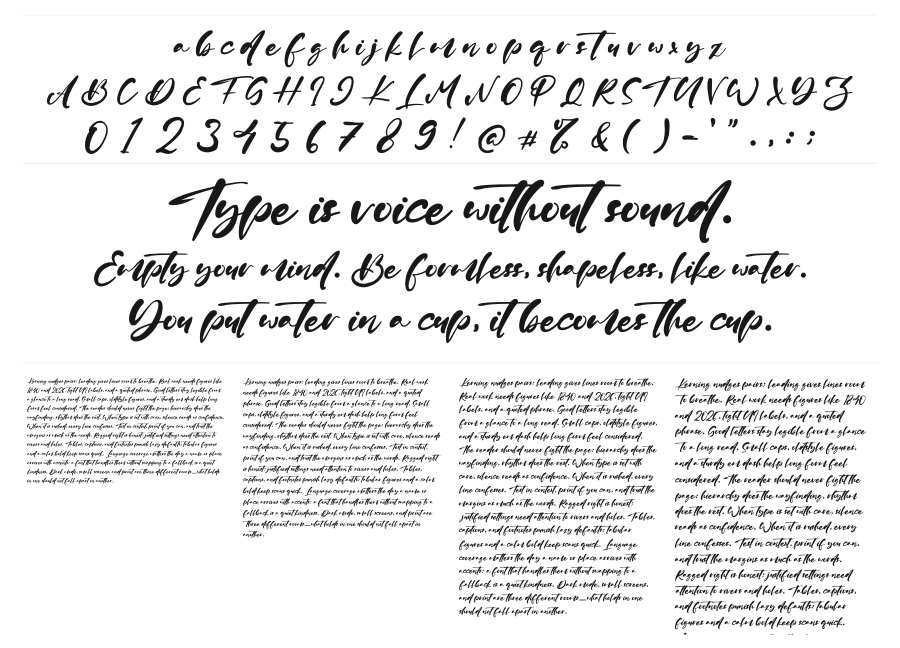 a b c d e f g h i j k l m n o p q r s t u v w x y z
A B C D E F G H I J K L M N O P Q R S T U V W X Y Z
0 1 2 3 4 5 6 7 8 9 ! @ # % & ( ) - ' " . , : ;
Type is voice without sound.
Empty your mind. Be formless, shapeless, like water.
You put water in a cup, it becomes the cup.
Kerning nudges pairs; leading gives lines room to breathe. Real work needs figures like
1840 and 2026, tight UI labels, and a quoted phrase. Good letters stay legible from
a glance to a long read. Small caps, oldstyle figures, and a sturdy em dash help long
form feel considered. The reader should never fight the page: hierarchy does the
wayfinding, rhythm does the rest. When type is set with care, silence reads as confidence.
When it is rushed, every line confesses. Test in context, print if you can, and trust the
margins as much as the words. Ragged right is honest; justified settings need attention to
rivers and holes. Tables, captions, and footnotes punish lazy defaults; tabular figures
and a calm bold keep scans quick. Language coverage matters the day a name or place
arrives with accents; a font that handles them without mapping to a fallback is a quiet
kindness. Dark mode, small screens, and print are three different rooms—what holds
in one should not fall apart in another.
Kerning nudges pairs; leading gives lines room to breathe. Real work
needs figures like 1840 and 2026, tight UI labels, and a quoted
phrase. Good letters stay legible from a glance to a long read. Small
caps, oldstyle figures, and a sturdy em dash help long form feel
considered. The reader should never fight the page: hierarchy does the
wayfinding, rhythm does the rest. When type is set with care, silence reads
as confidence. When it is rushed, every line confesses. Test in context,
print if you can, and trust the margins as much as the words. Ragged right
is honest; justified settings need attention to rivers and holes. Tables,
captions, and footnotes punish lazy defaults; tabular figures and a calm
bold keep scans quick. Language coverage matters the day a name or
place arrives with accents; a font that handles them without mapping to a
fallback is a quiet kindness. Dark mode, small screens, and print are
three different rooms—what holds in one should not fall apart in
another.
Kerning nudges pairs; leading gives lines room to breathe.
Real work needs figures like 1840 and 2026, tight UI
labels, and a quoted phrase. Good letters stay legible
from a glance to a long read. Small caps, oldstyle figures,
and a sturdy em dash help long form feel considered.
The reader should never fight the page: hierarchy does the
wayfinding, rhythm does the rest. When type is set with
care, silence reads as confidence. When it is rushed, every
line confesses. Test in context, print if you can, and trust the
margins as much as the words. Ragged right is honest;
justified settings need attention to rivers and holes. Tables,
captions, and footnotes punish lazy defaults; tabular
figures and a calm bold keep scans quick. Language
coverage matters the day a name or place arrives with
accents; a font that handles them without mapping to a
fallback is a quiet kindness. Dark mode, small screens,
and print are three different rooms—what holds in one
should not fall apart in another.
Kerning nudges pairs; leading gives lines room
to breathe. Real work needs figures like 1840
and 2026, tight UI labels, and a quoted
phrase. Good letters stay legible from a glance
to a long read. Small caps, oldstyle figures,
and a sturdy em dash help long form feel
considered. The reader should never fight the
page: hierarchy does the wayfinding, rhythm
does the rest. When type is set with care, silence
reads as confidence. When it is rushed, every
line confesses. Test in context, print if you can,
and trust the margins as much as the words.
Ragged right is honest; justified settings need
attention to rivers and holes. Tables, captions,
and footnotes punish lazy defaults; tabular
figures and a calm bold keep scans quick.